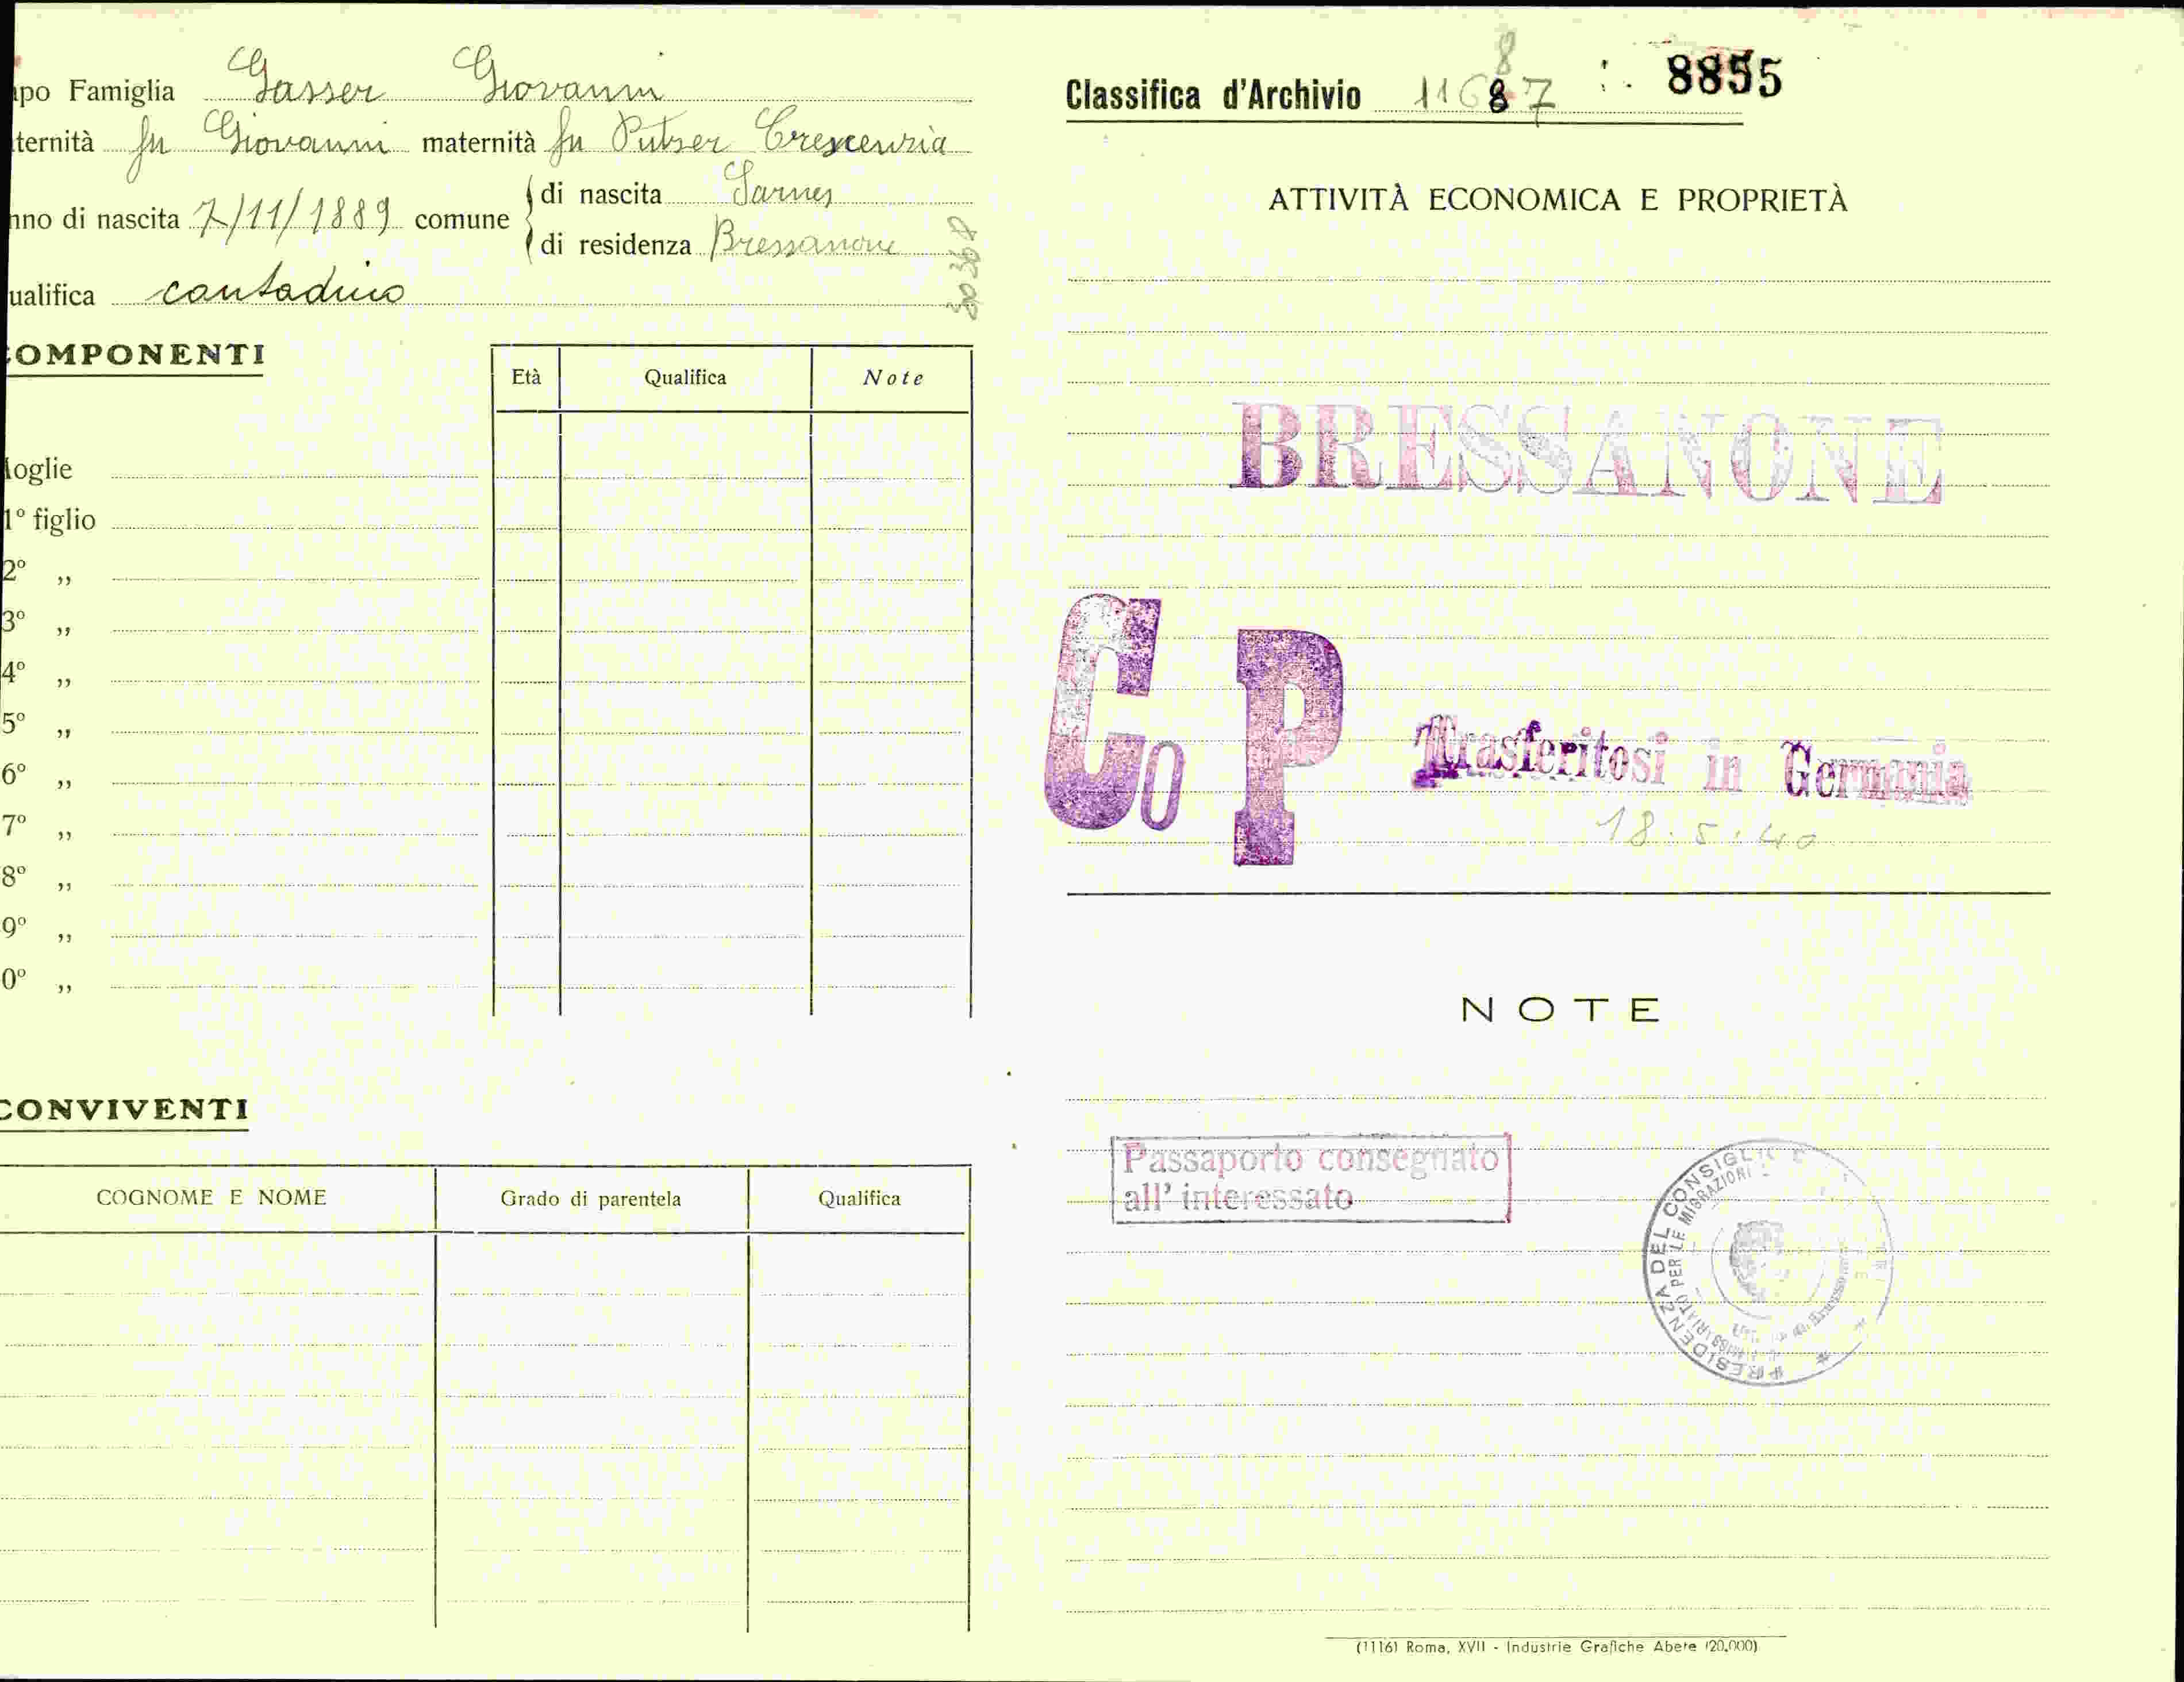 apo Famiglia Gasser Giovanni
ternità fu Giovanni maternità fu Putzer Crescenzia
nno di nascita 7/11/1889 comune
di nascita Sarnes
di residenza Bressanone
ualifica contadino
COMPONENTI
Età Qualifica Note
Moglie
1º figlio
2º „
3º „
4º „
5º „
6º „
7º „
8º „
9º „
0º „
CONVIVENTI
COGNOME E NOME Grado di parentela Qualifica
Classifica d'Archivio 8855
ATTIVITÀ ECONOMICA E PROPRIETÀ
BRESSANONE
Co P
Trasferitosi in Germania
18.5.40
NOTE
Passaporto consegnato
all' interessato
PRESIDENZA DEL CONSIGLIO
PER LE MIGRAZIONI
(1116) Roma, XVII - Industrie Grafiche Abete (20.000)